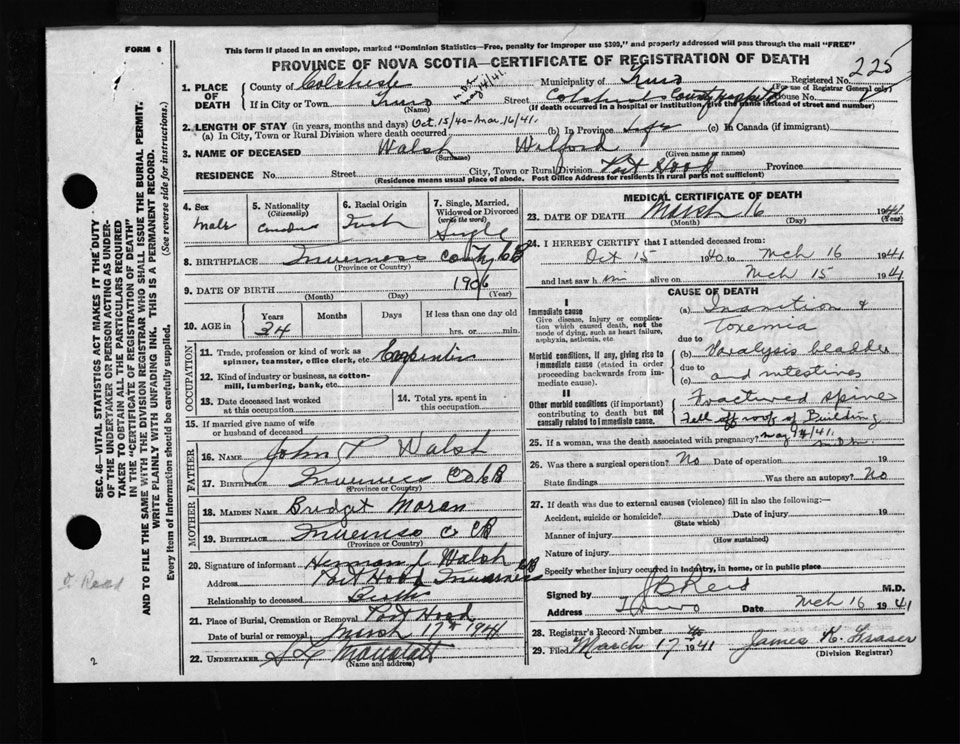 FORM 6
This form if placed in an envelope, marked "Dominion Statistics—Free, penalty for improper use $300," and properly addressed will pass through the mail "FREE"
PROVINCE OF NOVA SCOTIA—CERTIFICATE OF REGISTRATION OF DEATH
225
Registered No.
(For use of Registrar General only)
1. PLACE OF DEATH
County of Colchester
Municipality of Truro
If in City or Town Truro
(Name)
Street Colchester County Hospital House No.
(If death occurred in a hospital or institution, give the name instead of street and number)
May 14/41.
2. LENGTH OF STAY (in years, months and days) Oct. 15/40-Mar. 16/41.
(a) In City, Town or Rural Division where death occurred
(b) In Province Life
(c) In Canada (if immigrant)
3. NAME OF DECEASED Walsh Wilford
(Surname)
(Given name or names)
RESIDENCE No. Street City, Town or Rural Division Port Hood Province
(Residence means usual place of abode. Post Office Address for residents in rural parts not sufficient)
4. Sex
Male
5. Nationality
(Citizenship)
Canadian
6. Racial Origin
Irish
7. Single, Married, Widowed or Divorced
(write the word)
Single
8. BIRTHPLACE Inverness County CB
(Province or Country)
9. DATE OF BIRTH 1906
(Month) (Day) (Year)
10. AGE in
Years Months Days If less than one day old
34
hrs. or min.
OCCUPATION
11. Trade, profession or kind of work as spinner, teamster, office clerk, etc. Carpenter
12. Kind of industry or business, as cotton-mill, lumbering, bank, etc.
13. Date deceased last worked at this occupation
14. Total yrs. spent in this occupation
15. If married give name of wife or husband of deceased
FATHER
16. NAME John P Walsh
17. BIRTHPLACE Inverness Co CB
(Province or Country)
MOTHER
18. MAIDEN NAME Bridget Moran
19. BIRTHPLACE Inverness Co CB
(Province or Country)
20. Signature of informant Herman J Walsh
Address Port Hood Inverness CB
Relationship to deceased Brother
21. Place of Burial, Cremation or Removal Port Hood
Date of burial or removal March 17th 1941
22. UNDERTAKER
(Name and address)
MEDICAL CERTIFICATE OF DEATH
23. DATE OF DEATH March 16 1941
(Month) (Day) (Year)
24. I HEREBY CERTIFY that I attended deceased from:
Oct 15 1940 to Mch 16 1941
and last saw him alive on Mch 15 1941
CAUSE OF DEATH
I
Immediate cause
Give disease, injury, or complication which caused death, not the mode of dying, such as heart failure, asphyxia, asthenia, etc.
(a) Inanition &
toxemia
due to
Morbid conditions, if any, giving rise to immediate cause (stated in order proceeding backwards from immediate cause).
(b) Paralysis bladder
due to
(c) and intestines
II
Other morbid conditions (if important) contributing to death but not causally related to immediate cause.
Fractured spine
Fell off roof of Building
May 14/41.
25. If a woman, was the death associated with pregnancy?
26. Was there a surgical operation? No Date of operation 19
State findings Was there an autopsy? No
27. If death was due to external causes (violence) fill in also the following:—
Accident, suicide or homicide? Date of injury 19
(State which)
Manner of injury
(How sustained)
Nature of injury
Specify whether injury occurred in industry, in home, or in public place
Signed by J B Reid M.D.
Address Truro Date Mch 16 1941
28. Registrar's Record Number
29. Filed March 17 1941 James K. Fraser
(Division Registrar)
SEC. 46—VITAL STATISTICS ACT MAKES IT THE DUTY
OF THE UNDERTAKER OR PERSON ACTING AS UNDER-
TAKER TO OBTAIN ALL THE PARTICULARS REQUIRED
IN THE "CERTIFICATE OF REGISTRATION OF DEATH"
AND TO FILE THE SAME WITH THE DIVISION REGISTRAR WHO SHALL ISSUE THE BURIAL PERMIT.
WRITE PLAINLY WITH UNFADING INK. THIS IS A PERMANENT RECORD.
Every item of information should be carefully supplied. (See reverse side for instructions.)
2